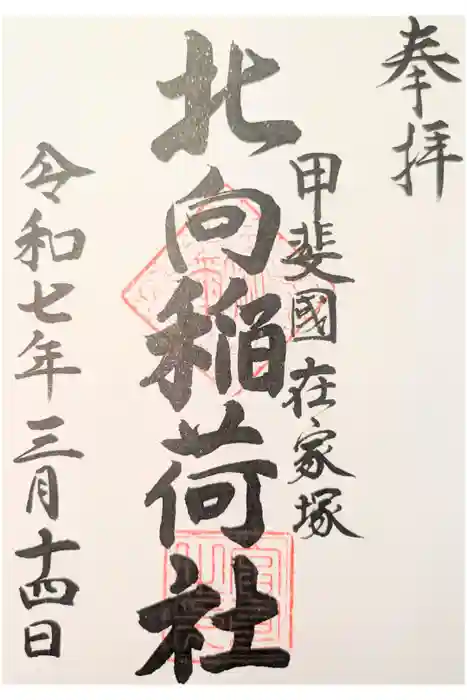 奉拝
甲斐國在家塚
北向稲荷社
令和七年三月十四日